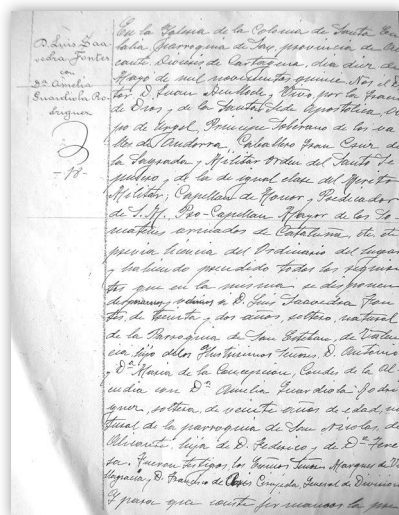 D. Luis Saa-
vedra Fontes
con
Dª Amelia
Guardiola Ro-
driguez
-18-
En la Iglesia de la Colonia de Santa Eu
lalia, parroquia de Sax, provincia de Ali
cante, Diócesis de Cartagena, dia diez de
Mayo de mil novecientos quince. Nos el D
tor D. Juan Benlloch y Vivó, por la Gracia
de Dios, y de la Santa Sede Apostólica, O
po de Urgel, Principe Soberano de los va
lles de Andorra, Caballero Gran Cruz de
la Sagrada y Militar Orden del Santo Se
pulcro, y de la de igual clase del Mérito
Militar; Capellan de Honor, y Predicador
de S. M., Pro-Capellan Mayor de los So-
matenes armados de Cataluña, etc. et
previa licencia del Ordinario del lugar
y habiendo precedido todos los
tos que en la misma se disponen
a D. Luis Saavedra Fon
tes, de treinta y dos años, soltero, natural
de la Parroquia de San Esteban, de Valen
cia, hijo de los Ilustrisimos Señores, D. Antonio
y Dª Maria de la Concepcion, Condes de la Al
cudia con Dª Amelia Guardiola Rodri
guez, soltera, de veinte años de edad, na
tural de la parroquia de San Nicolás, de
Alicante, hija de D. Federico y de Dª Tere
sa. Fueron testigos los Señores Marques de V
y D. Francisco de General de Division
Y para que conste firmamos la pre